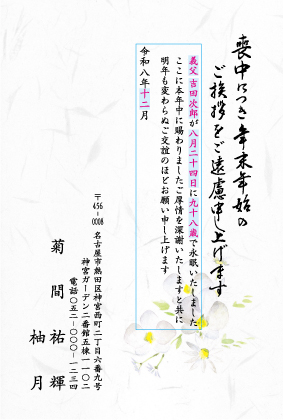 喪中につき年末年始の
ご挨拶をご遠慮申し上げます
義父 吉田次郎が八月二十四日に九十八歳で永眠いたしました
ここに本年中に賜わりましたご厚情を深謝いたしますと共に
明年も変わらぬご交誼のほどお願い申し上げます
令和八年十二月
〒456-0008
名古屋市熱田区神宮西町二丁目六番九号
神宮ガーデン二番館五棟一一〇二
電話〇五二-〇〇〇-一二三四
菊間 祐輝
柚月